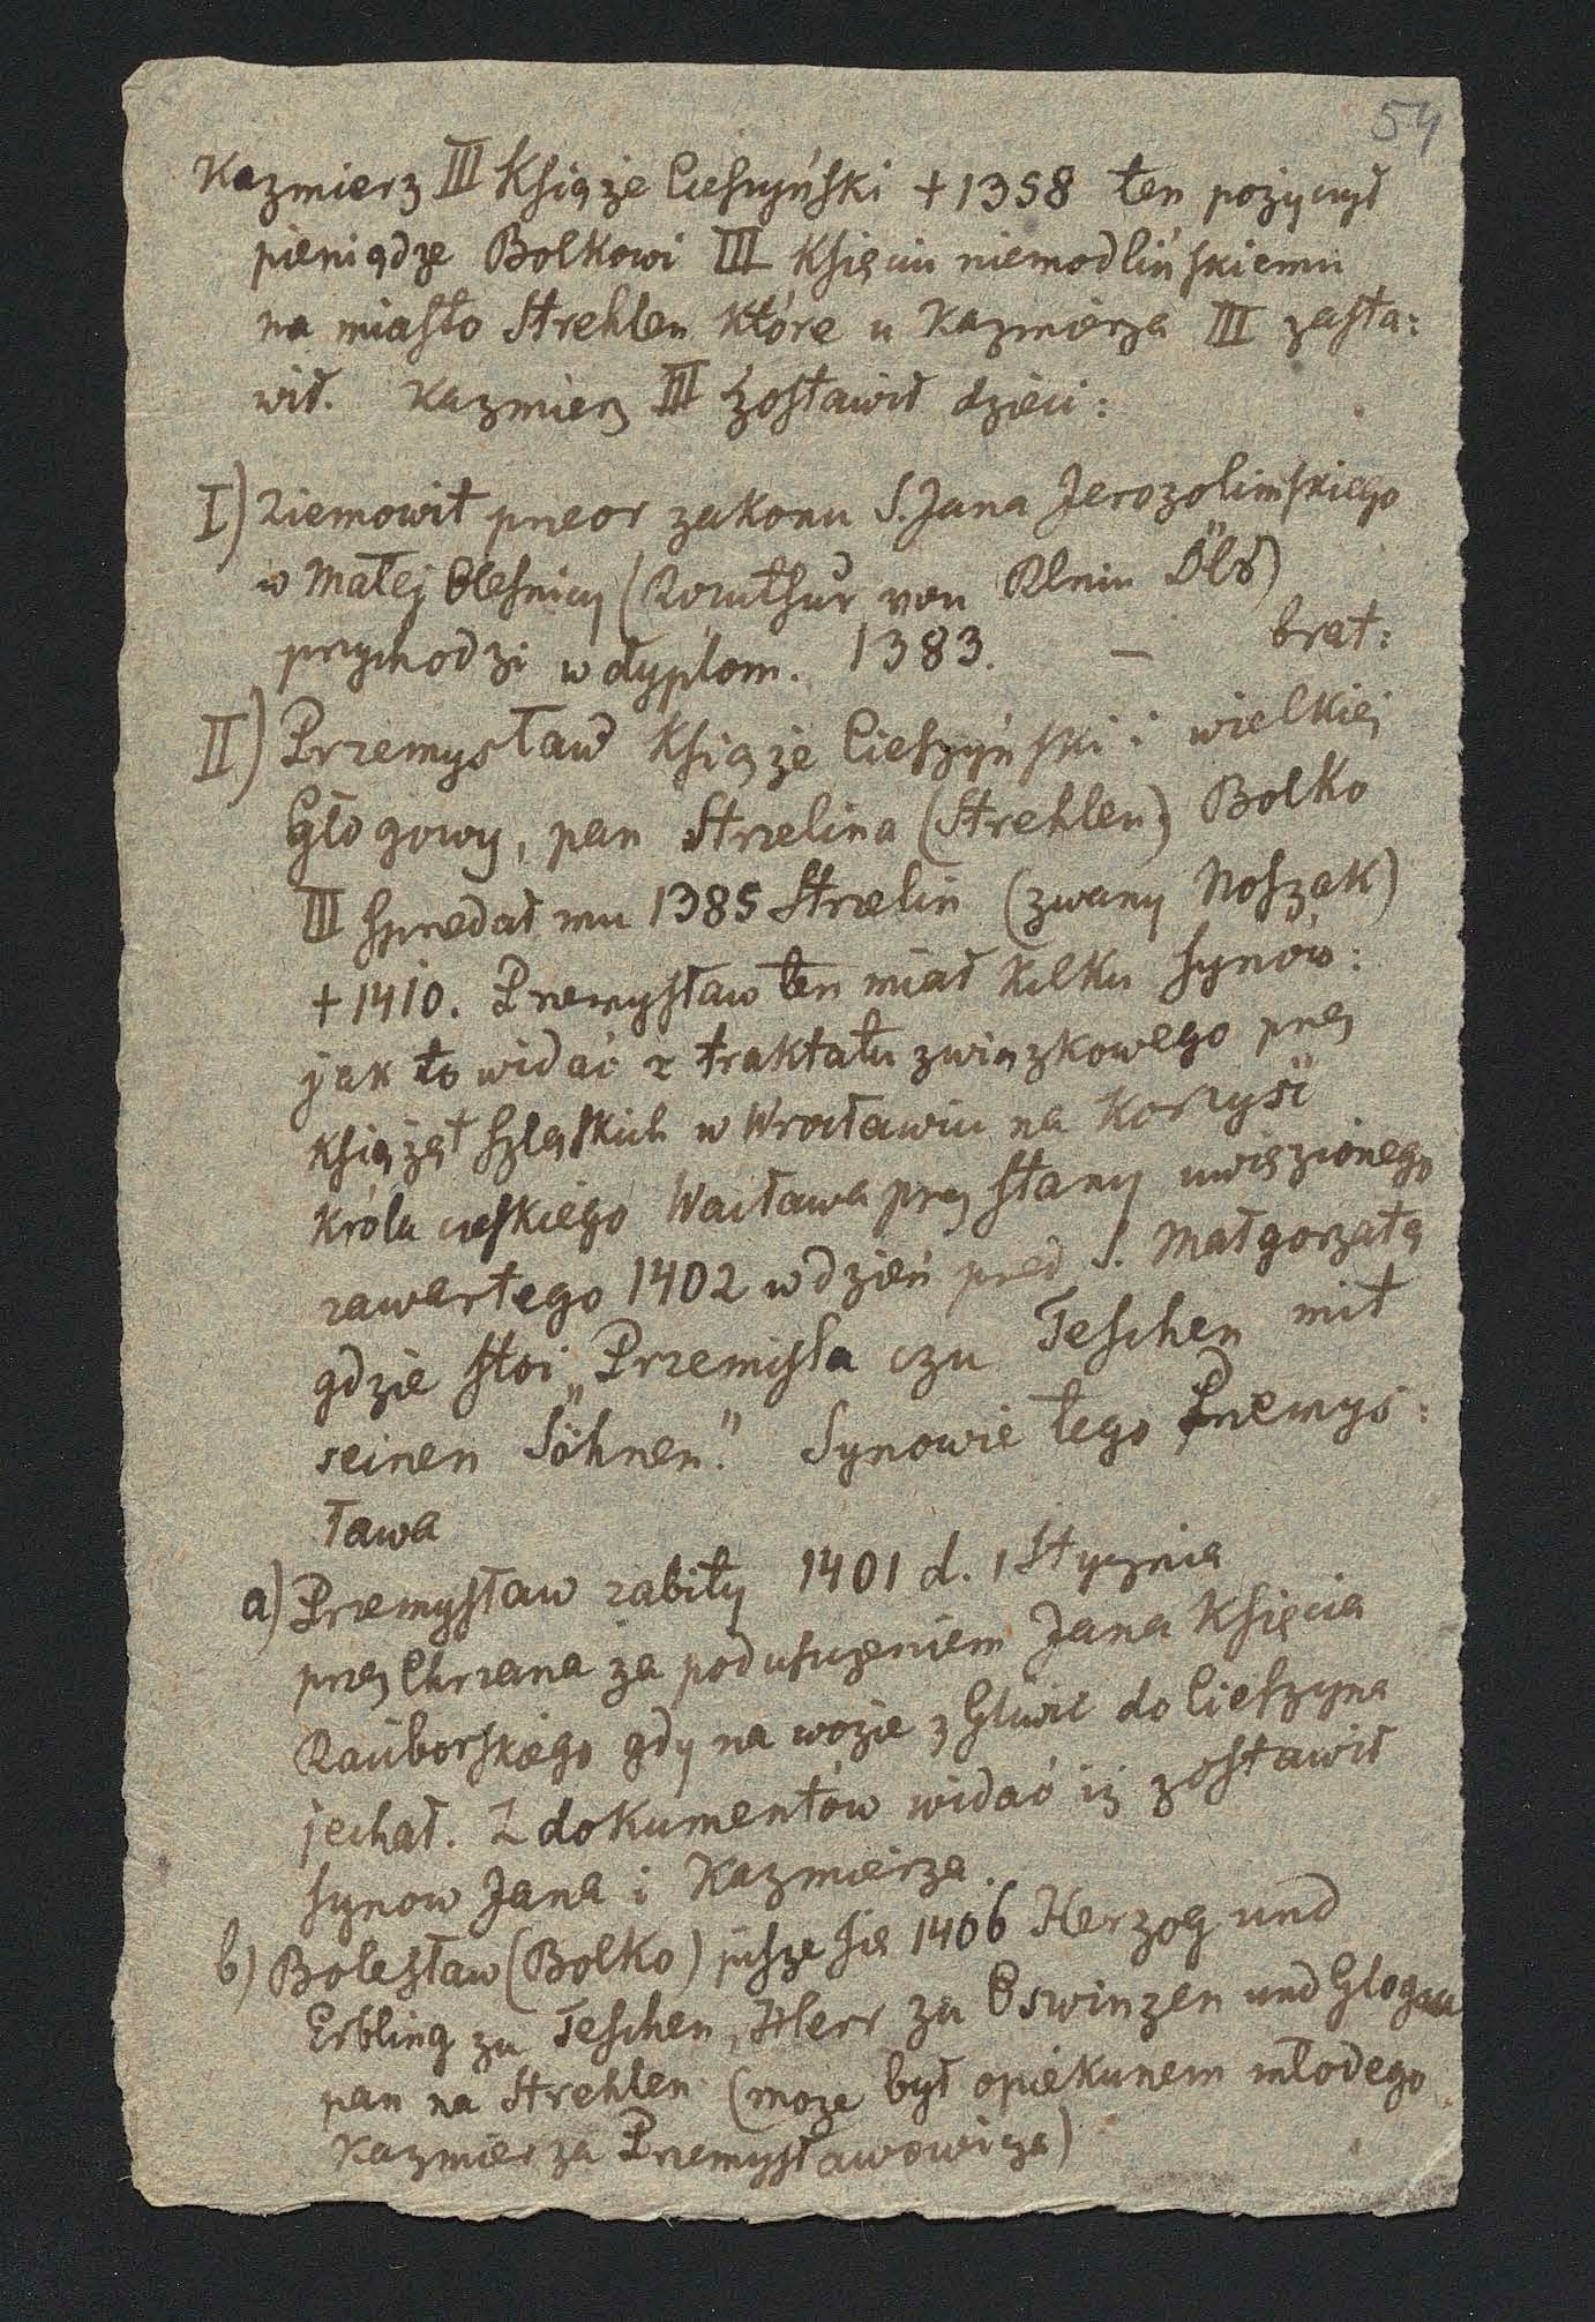 54
Kazmierz III Książe Cieszyński + 1358 ten pożyczył
pieniądze Bolkowi III Księciu niemodlińskiemu
na miasto Strehlen które u Kazmierza III zasta:
wił. Kazmierz III zostawił dzieci:
I) Ziemowit przeor zakonu S. Jana Jerozolimskiego
w Małej Olesnicy (Komthur von Klein Öls)
przychodzi w dyplom. 1383. — brat:
II) Przemysław Książe Cieszyński i wielkiej
Głogowy, pan Strzelina (Strehlen) Bolko
III sprzedał mu 1385 Strzelin (zwany Noszak)
+ 1410. Przemysław ten miał kilku synów:
jak to widać z traktatu związkowego przez
książąt szląskich w Wrocławiu na korzyść
króla czeskiego Wacława przez stany uwięzionego
zawartego 1402 w dzień przed S. Małgorzatą
gdzie stoi „Przemisla czu Teschen mit
seinen Söhnen." Synowie tego Przemys:
ława
a) Przemysław zabity 1401 d. 1 Stycznia
przez Chrzana za poduszczeniem Jana Księcia
Raciborskiego gdy na wozie z Gliwic do Cieszyna
jechał. Z dokumentów widać iż zostawił
synow Jana i Kazmierza.
b) Bolesław (Bolko) pisze się 1406 Herzog und
Erbling zu Teschen, Herr zu Oswinzen und Glogau
pan na Strehlen (moze był opiekunem młodego
Kazmierza Przemysławowicza)